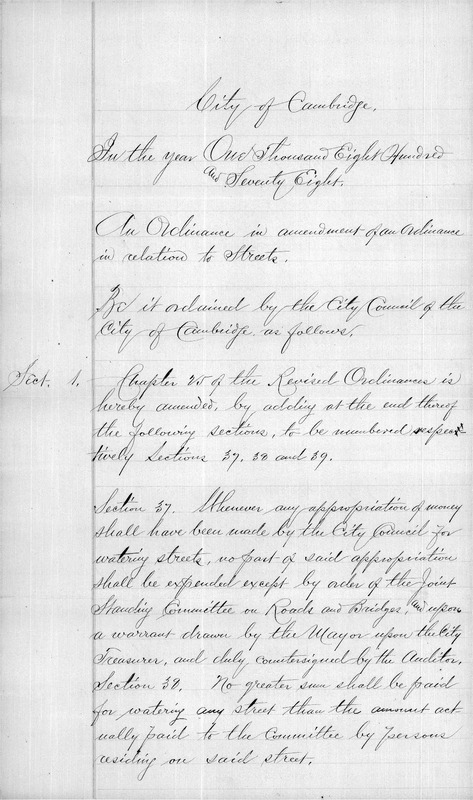 City of Cambridge.
In the year One Thousand Eight Hundred
and Seventy Eight.
An Ordinance in amendment of an Ordinance
in relation to Streets.
Be it ordained by the City Council of the
City of Cambridge as follows.
Sect. 1. Chapter 25 of the Revised Ordinances is
hereby amended, by adding at the end thereof
the following sections, to be numbered respec-
tively Sections 37, 38 and 39.
Section 37. Whenever any appropriation of money
shall have been made by the City Council for
watering streets, no part of said appropriation
shall be expended except by order of the Joint
Standing Committee on Roads and Bridges, and upon
a warrant drawn by the Mayor upon the City
Treasurer, and duly countersigned by the Auditor.
Section 38. No greater sum shall be paid
for watering any street than the amount act
ually paid to the Committee by persons
residing on said street.